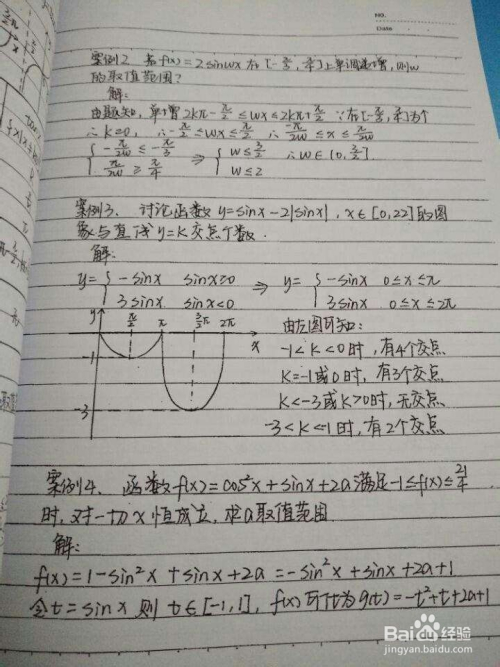 NO.
Date
案例2. 若f(x)=2sinwx在[-π/3,π/4]上单调递增,则w
的取值范围?
解:
由题知,单增2kπ-π/2≤wx≤2kπ+π/2 ∵在[-π/3,π/4]为个
∴k=0, ∴-π/2≤wx≤π/2 ∴-π/2w≤x≤π/2w
{-π/2w≤-π/3 ⇒ {w≤3/2 ∴w∈(0,3/2]
π/2w≥π/4 w≤2
案例3. 讨论函数y=sinx-2|sinx|, x∈[0,2π]的图
象与直线y=K交点个数.
解:
y={-sinx sinx≥0 ⇒ y={-sinx 0≤x≤π
3sinx sinx<0 3sinx 0≤x≤2π
y π/2 π 3/2π 2π x
-1
-3
由左图可知:
-1<K<0时,有4个交点
K=-1或0时,有3个交点
K<-3或K>0时,无交点
-3<K<-1时,有2个交点
案例4. 函数f(x)=cos²x+sinx+2a满足-1≤f(x)≤21/4
时,对一切x恒成立,求a取值范围
解:
f(x)=1-sin²x+sinx+2a=-sin²x+sinx+2a+1
令t=sinx 则t∈[-1,1], f(x)可化为g(t)=-t²+t+2a+1
Baidu经验
jingyan.baidu.com